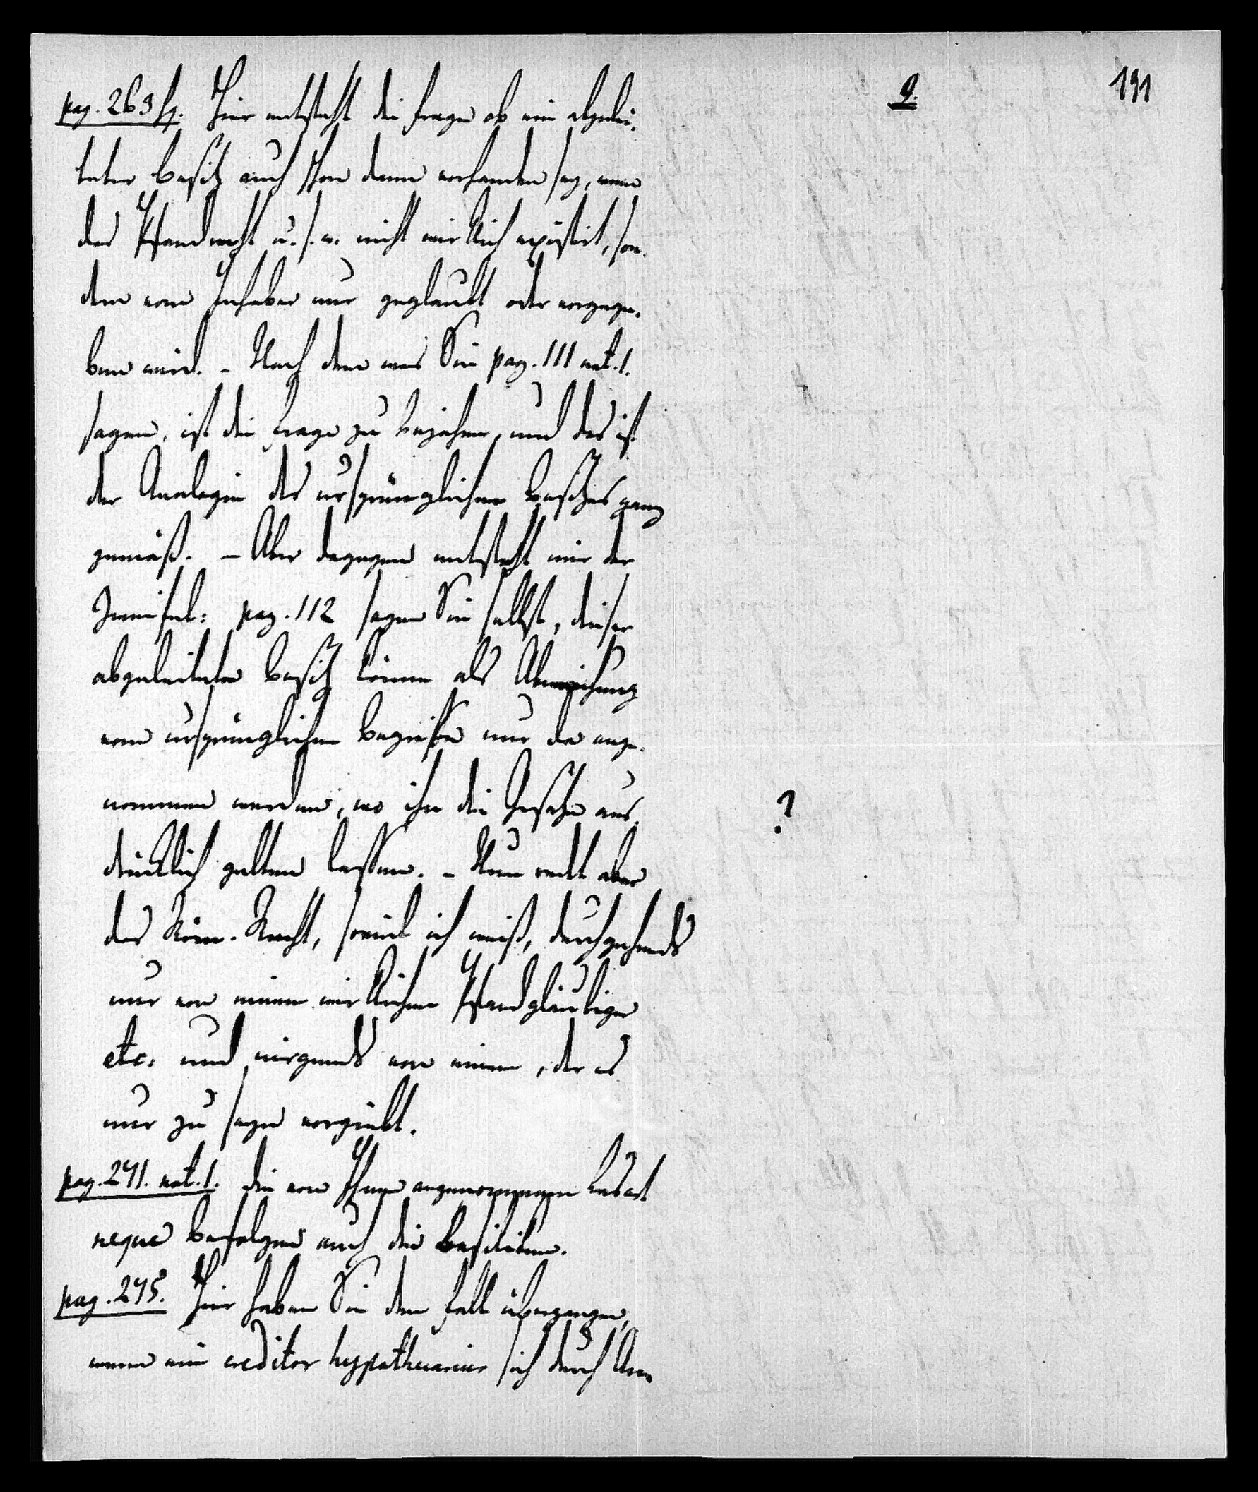 9.
191
pag. 263 fg. Hier entsteht die Frage ob ein abgelei-
teter Besitz auch schon dann vorhanden sey, wenn
das Pfandrecht u. s. w. nicht wirklich existirt, son-
dern vom Inhaber nur geglaubt oder vorgege-
ben wird. – Nach dem was Sie pag. 111 not. 1.
sagen, ist die Frage zu bejahen, und das ist
der Analogie des ursprünglichen Besitzes ganz
gemäß. – Aber dagegen entsteht mir der
Zweifel: pag. 112 sagen Sie selbst, dieser
abgeleitete Besitz könne als Abweichung
vom ursprünglichen Begriffe nur da ange-
nommen werden, wo ihn die Gesetze aus-
drücklich gelten lassen. – Nun redet aber
?
das Röm. Recht, soviel ich weiß, durchgehends
nur von einem wirklichen Pfandgläubiger
etc. und nirgends von einem, der es
nur zu seyn vorgiebt.
pag. 271. not. 1. die von Ihnen angenommene Lesart
neque befolgen auch die Basiliken.
pag. 275. Hier haben Sie den Fall übergangen,
wenn ein creditor hypothecarius sich durch